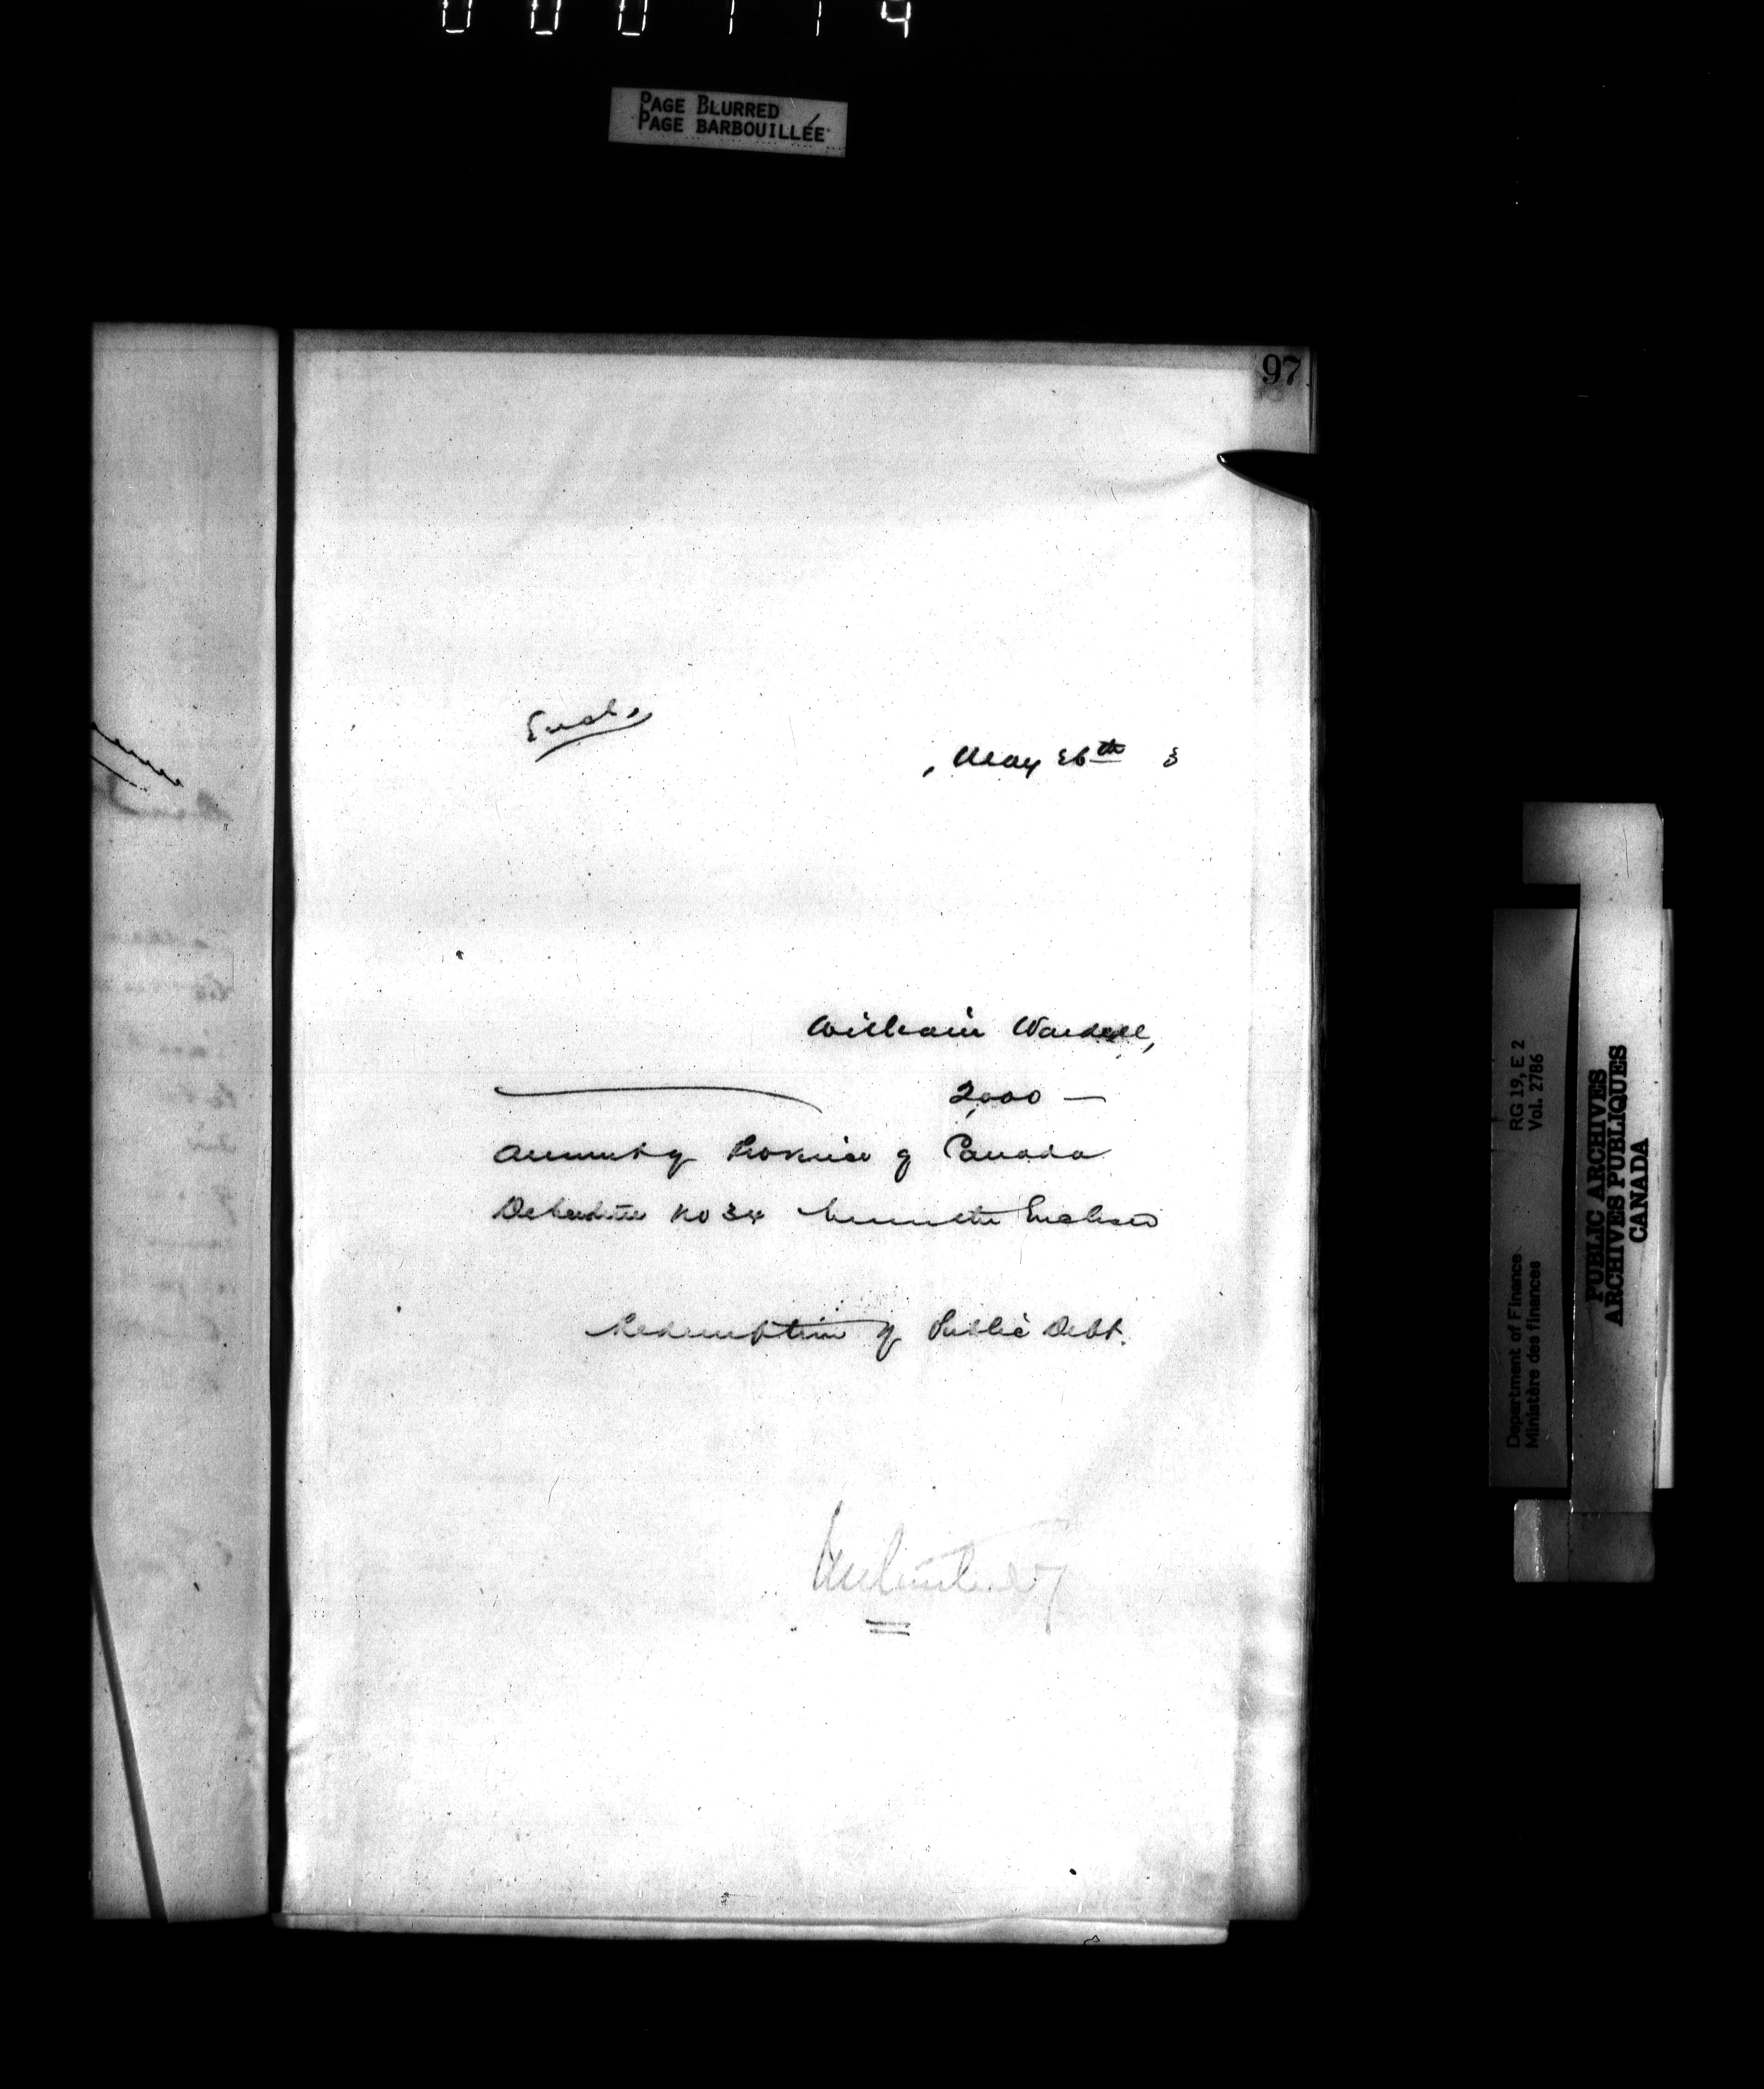 000114
PAGE BLURRED
PAGE BARBOUILLÉE
97
Encl.
May 26th 3
William Wardell,
2,000 —
amount of Province of Canada
Debenture No 34 herewith Enclosed
Redemption of Public Debt.
Department of Finance RG 19, E 2
Ministère des finances Vol. 2786
PUBLIC ARCHIVES
ARCHIVES PUBLIQUES
CANADA